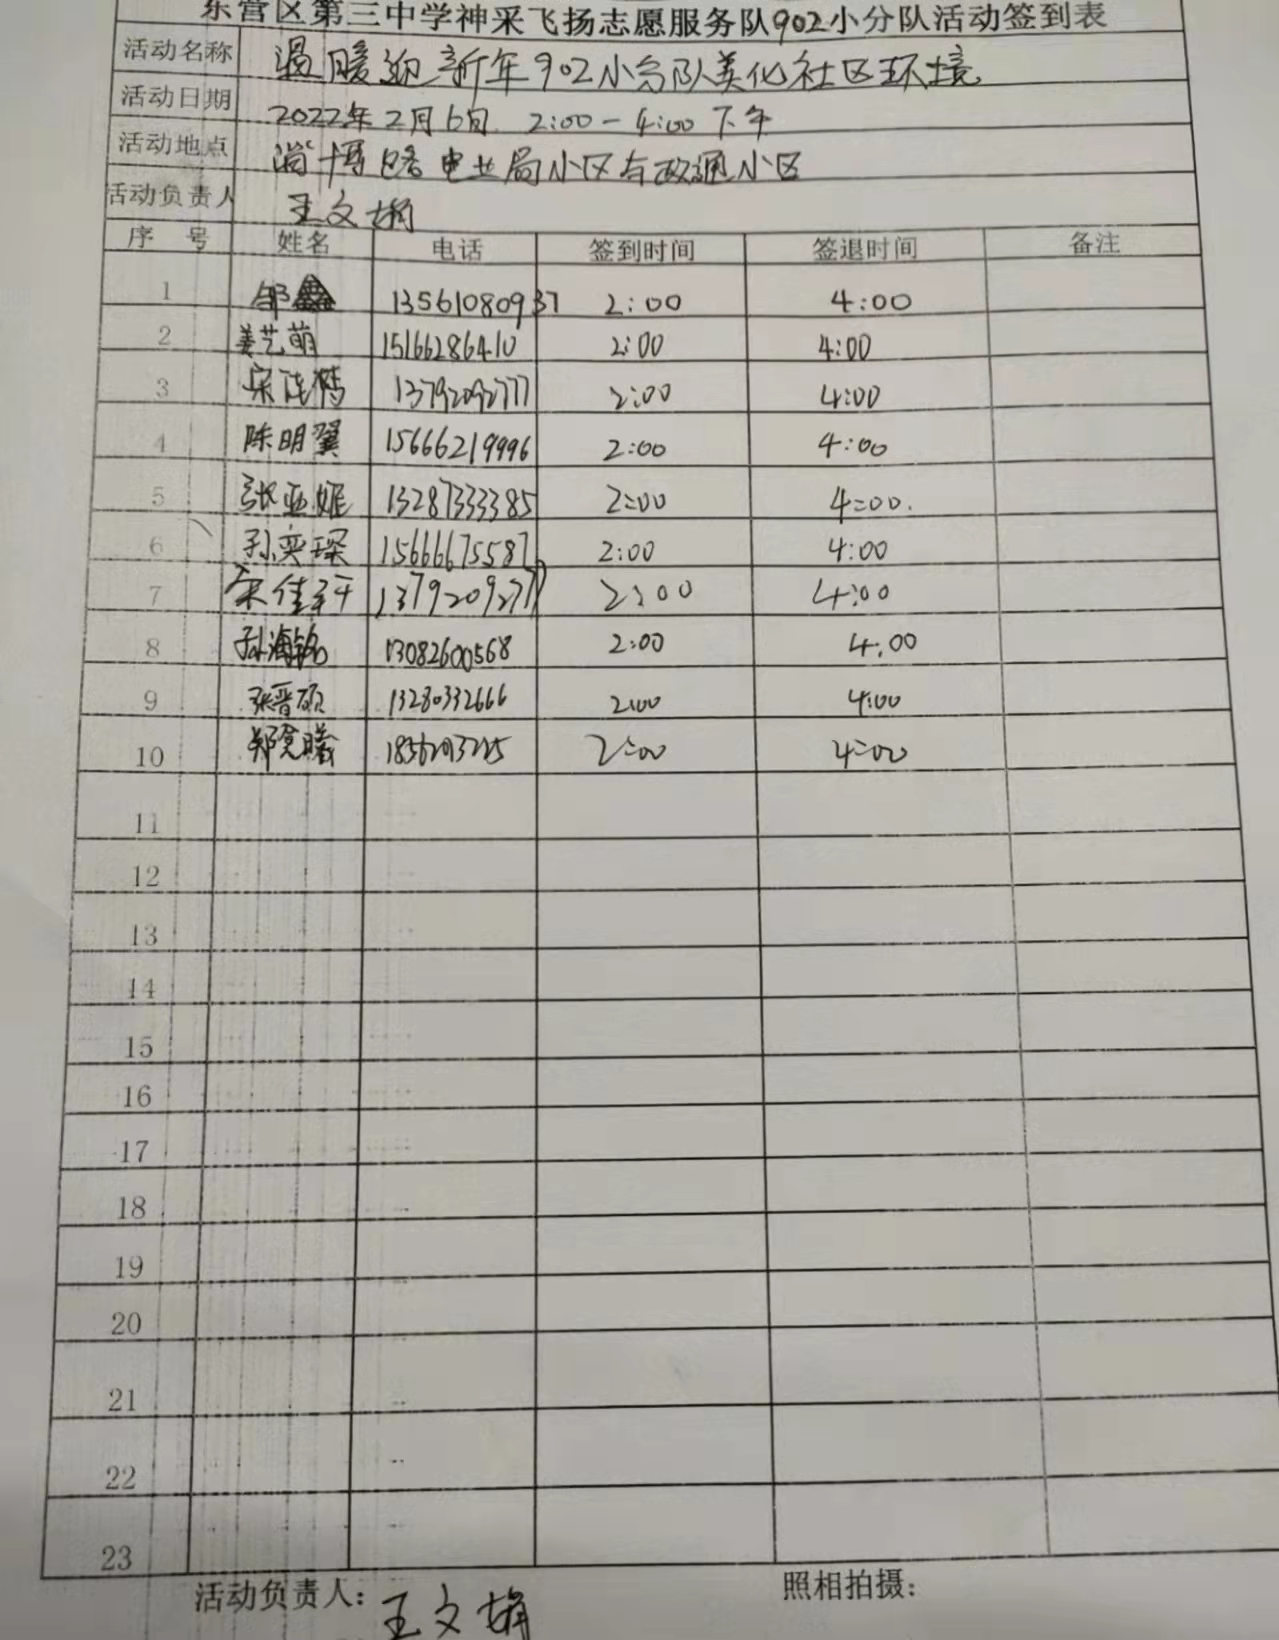 东营区第三中学神采飞扬志愿服务队902小分队活动签到表
活动名称 温暖迎新年902小分队美化社区环境
活动日期 2022年2月6日 2:00-4:00下午
活动地点 淄博路电业局小区与政通小区
活动负责人 王文娟
序号 姓名 电话 签到时间 签退时间 备注
1 邹鑫 13561080937 2:00 4:00
2 姜艺萌 15166286410 2:00 4:00
3 13792092777 2:00 4:00
4 陈明翼 15666219996 2:00 4:00
5 张亚妮 13287333385 2:00 4:00
6 孙奕琛 15666675587 2:00 4:00
7 宋佳 13792092777 2:00 4:00
8 孙海铭 13082600568 2:00 4:00
9 张晋硕 13280332666 2:00 4:00
10 郑 2:00 4:00
11
12
13
14
15
16
17
18
19
20
21
22
23
活动负责人: 王文娟 照相拍摄: